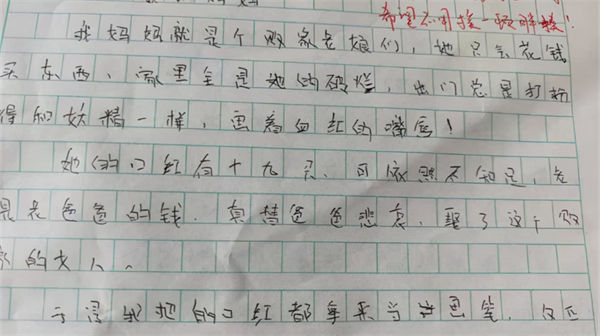 希望不用挨一顿胖揍！
我妈妈就是个败家老娘们，她只会花钱
买东西，家里全是她的破烂，出门总是打扮
得和妖精一样，画着血红的嘴唇！
她的口红有十九只，可依照不知足，老
是花爸爸的钱，真替爸爸悲哀，娶了这个败
家的女人。
于是我把她的口红都拿来当画笔，